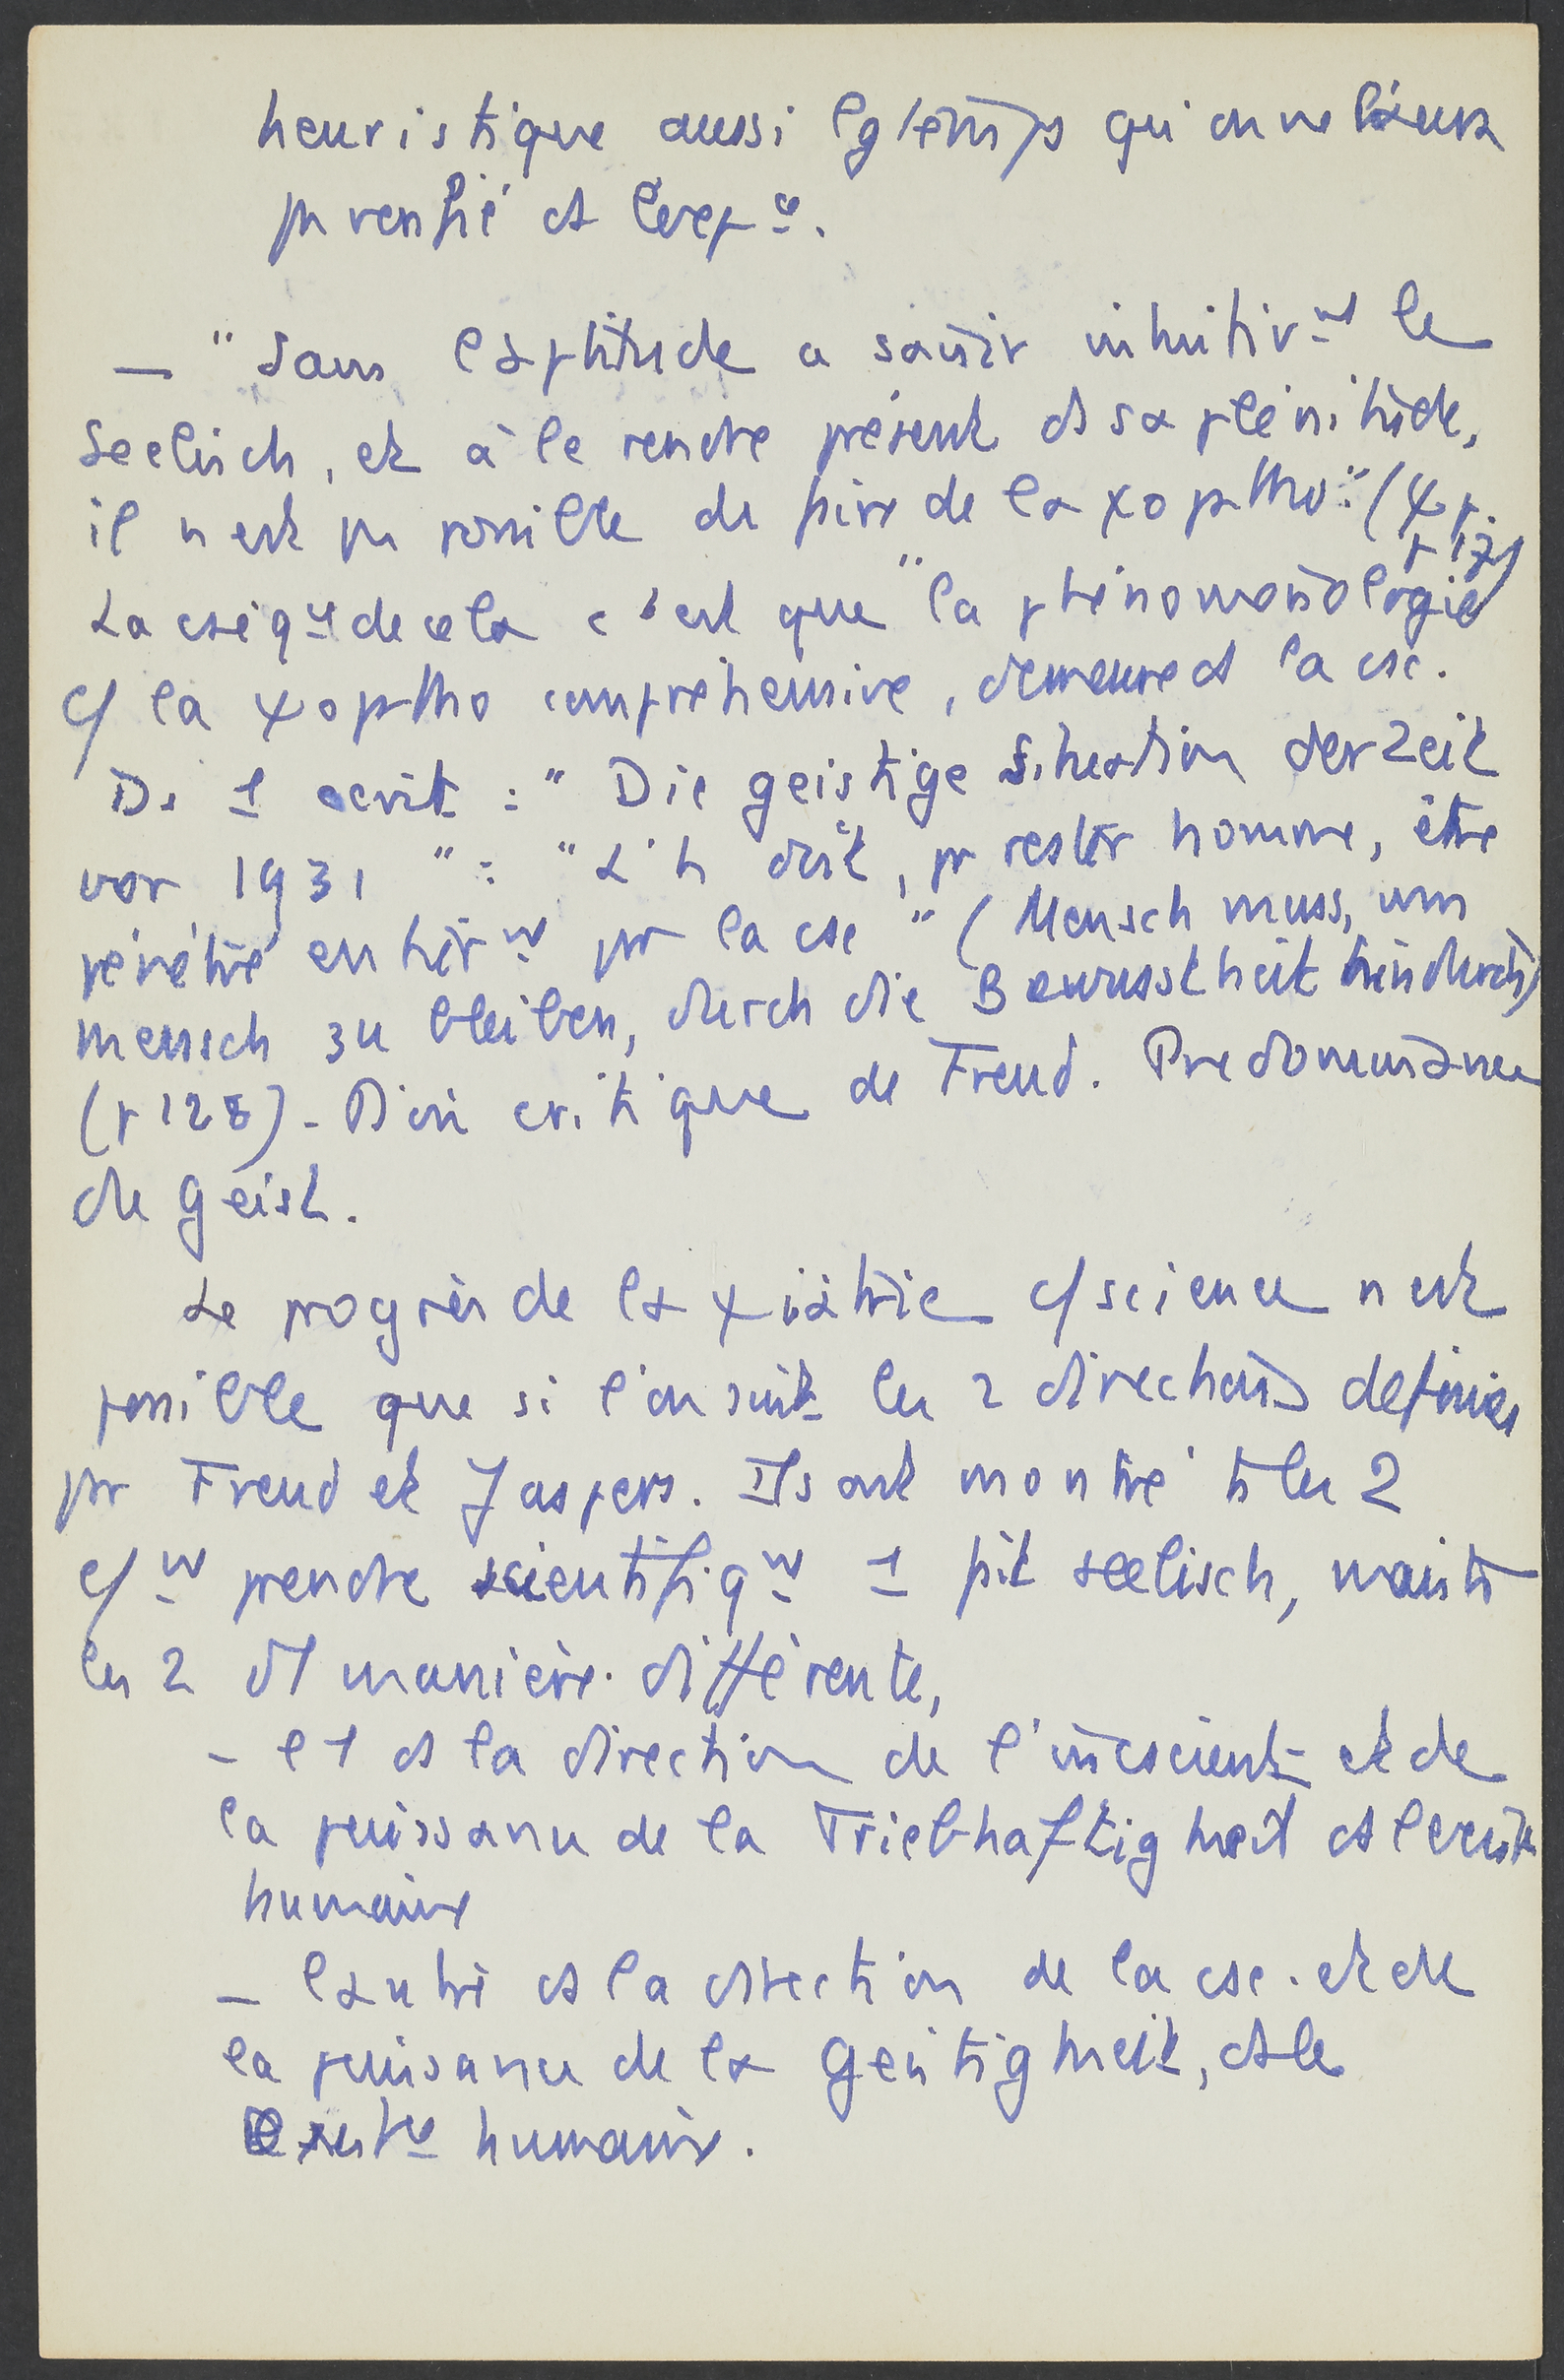 heuristique aussi lgtemps qu'on ne l'aura
pas vérifié ds l'expce.
— "Sans l'aptitude à saisir intuitivnt le
Seelisch, et à le rendre présent ds sa plénitude,
il n'est pas possible de faire de la ψopatho." (ψp.
p 17)
La cséqce de cela c'est que "la phénoménologie
c/ la ψopatho compréhensive, demeure ds la csc.
Ds 1 écrit : "Die geistige Situation der Zeit
vor 1931" : "L'h doit, pr rester homme, être
pénétré entièrnt par la csc" (Mensch muss, um
mensch zu bleiben, durch die Bewusstheit hindurch)
(p 128) - D'où critique de Freud. Prédominance
du geist.
Le progrès de la ψiatrie c/ science n'est
possible que si l'on suit les 2 directions définies
par Freud et Jaspers. Ils ont montré ts les 2
c/nt prendre scientifiqnt 1 fait seelisch, mais ts
les 2 d'1 manière différente,
- l'1 ds la direction de l'incscient et de
la puissance de la Triebhaftigkeit ds l'existce
humaine
- l'autre ds la direction de la csc. et de
la puissance de la Geistigkeit, ds le
existce humaine.